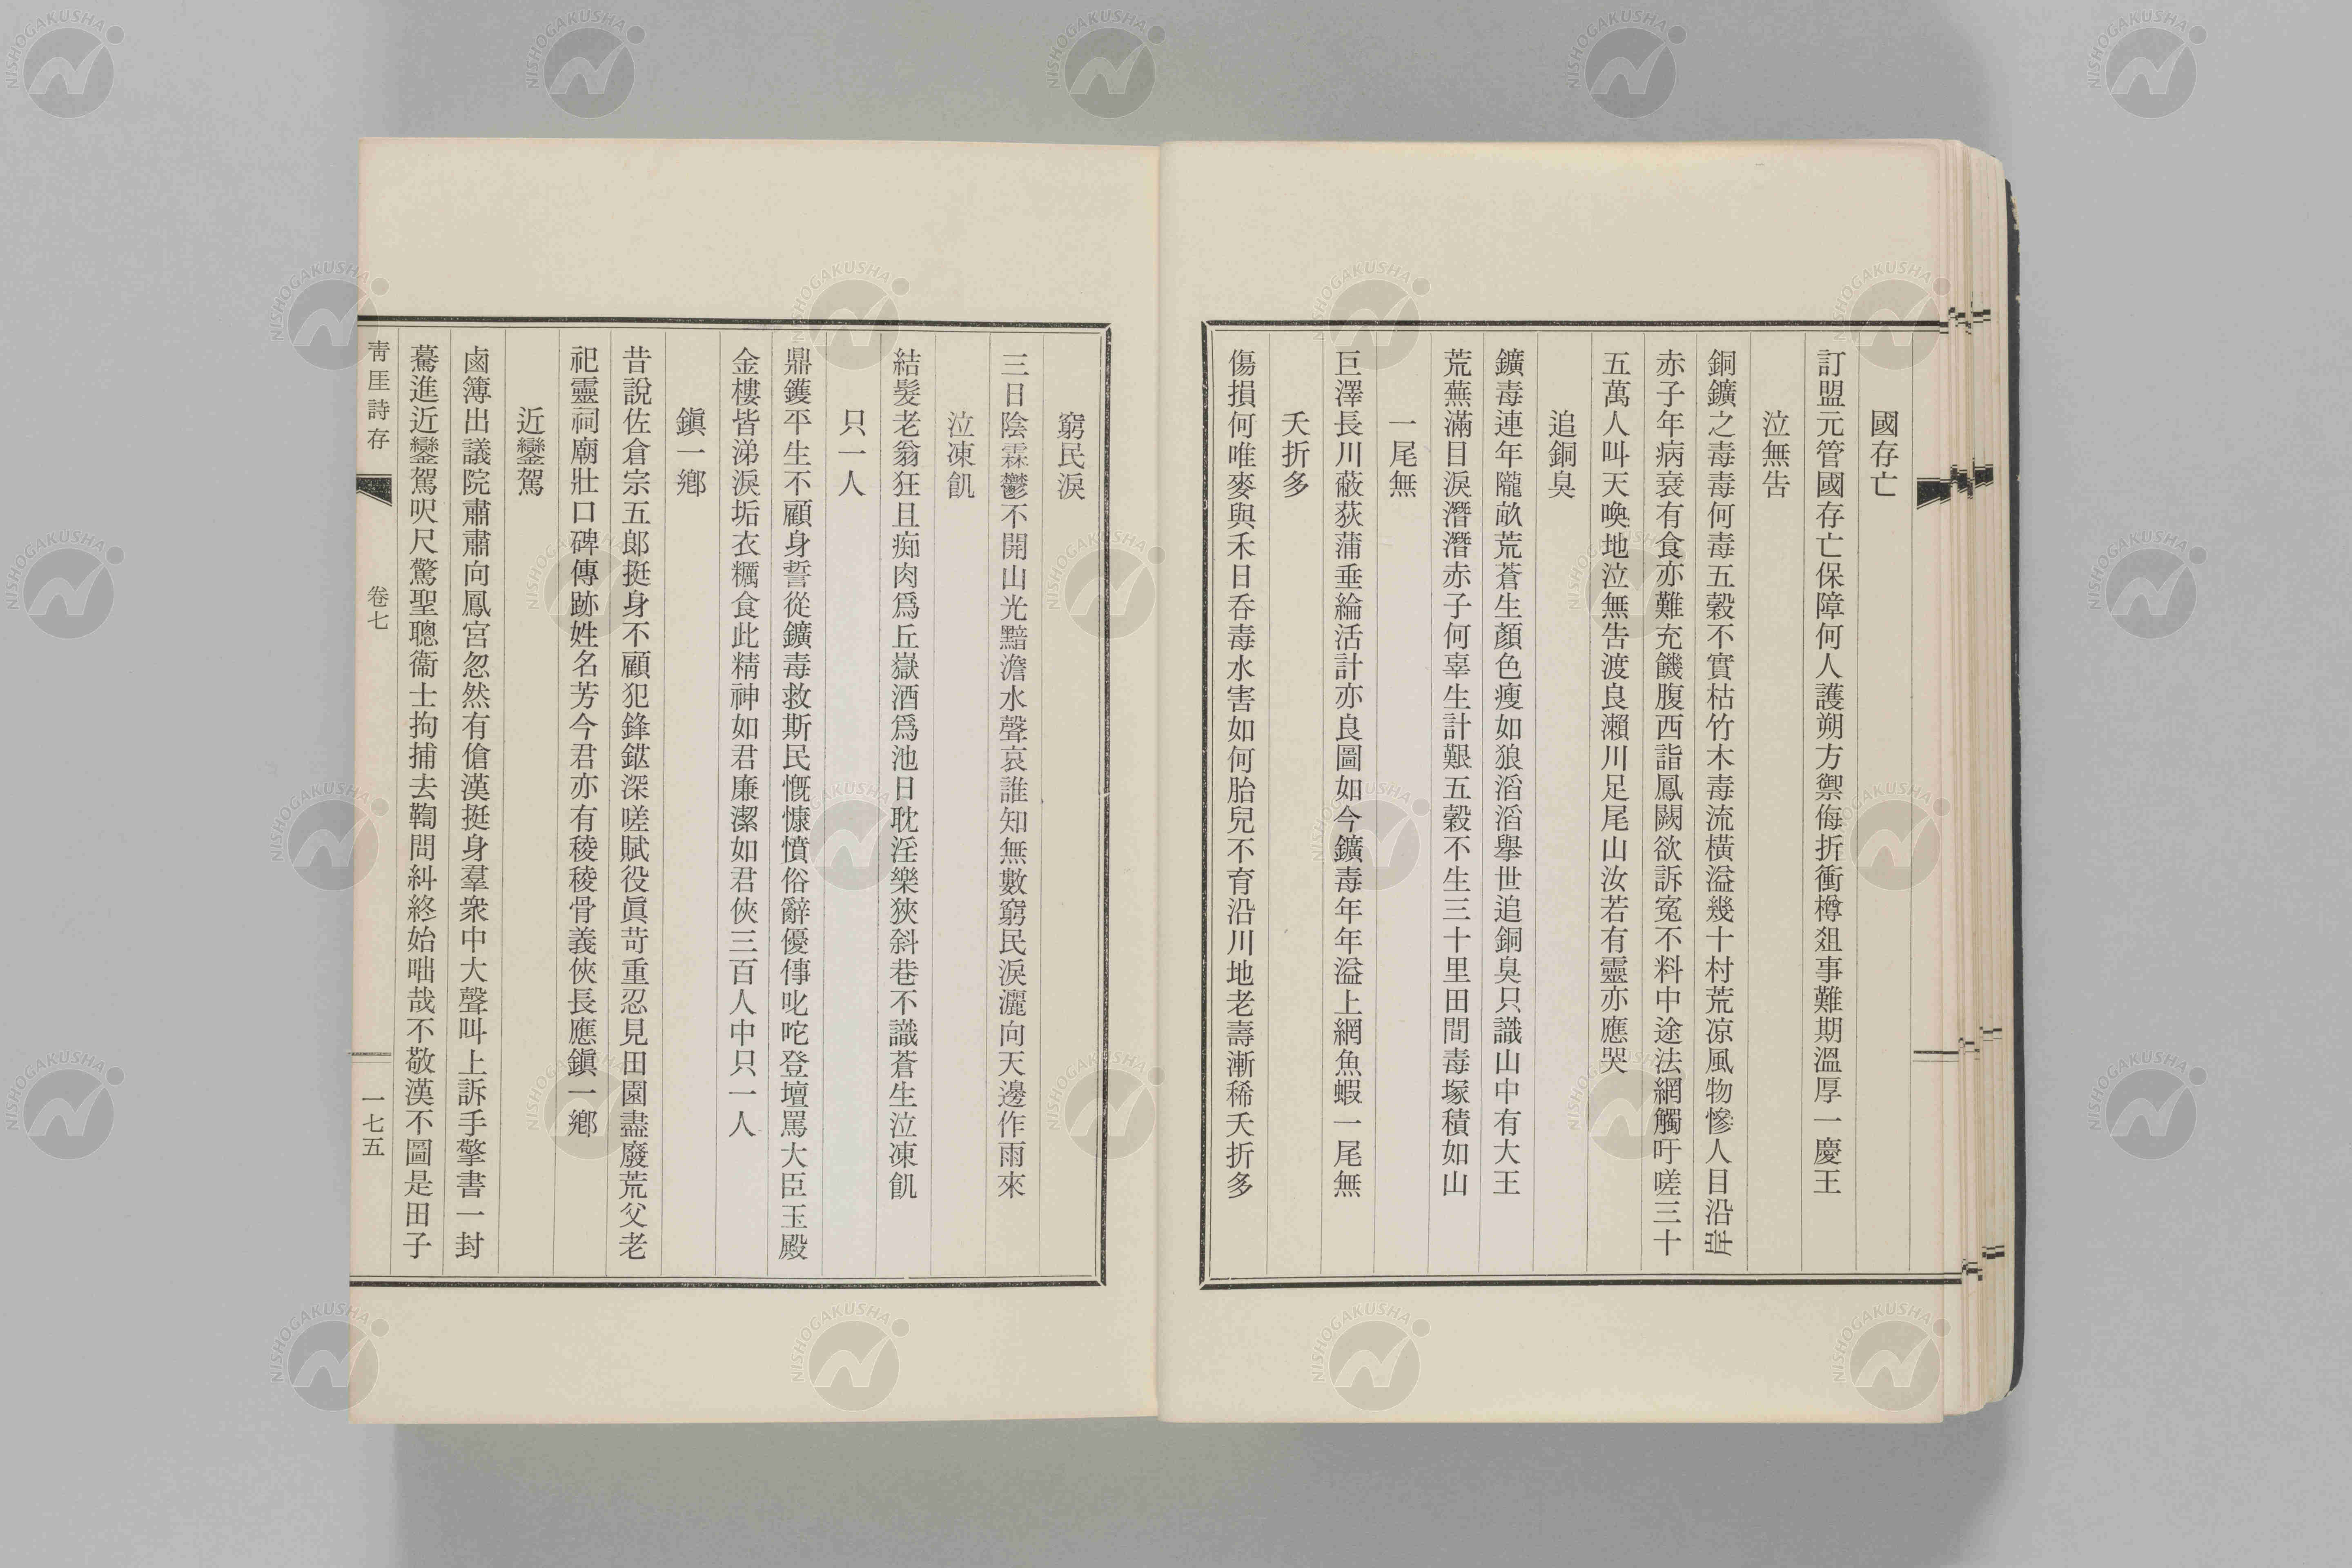 國存亡
訂盟元管國存亡保障何人護朔方禦侮折衝樽爼事難期溫厚一慶王
泣無告
銅鑛之毒毒何毒五穀不實枯竹木毒流橫溢幾十村荒凉風物慘人目沿岸
赤子年病衰有食亦難充饑腹西詣鳳闕欲訴寃不料中途法網觸吁嗟三十
五萬人叫天喚地泣無告渡良瀨川足尾山汝若有靈亦應哭
追銅臭
鑛毒連年隴畝荒蒼生顏色瘦如狼滔滔擧世追銅臭只識山中有大王
荒蕪滿目淚潛潛赤子何辜生計艱五穀不生三十里田間毒塚積如山
一尾無
巨澤長川蔽荻蒲垂綸活計亦良圖如今鑛毒年年溢上網魚蝦一尾無
夭折多
傷損何唯麥與禾日呑毒水害如何胎兒不育沿川地老壽漸稀夭折多
窮民淚
三日陰霖鬱不開山光黯澹水聲哀誰知無數窮民淚灑向天邊作雨來
泣凍飢
結髮老翁狂且痴肉爲丘嶽酒爲池日耽淫樂狹斜巷不識蒼生泣凍飢
只一人
鼎鑊平生不顧身誓從鑛毒救斯民慨慷憤俗辭優俸叱咤登壇罵大臣玉殿
金樓皆涕淚垢衣糲食此精神如君廉潔如君俠三百人中只一人
鎭一鄕
昔說佐倉宗五郎挺身不顧犯鋒鋩深嗟賦役眞苛重忍見田園盡廢荒父老
祀靈祠廟壯口碑傳跡姓名芳今君亦有稜稜骨義俠長應鎭一鄕
近鑾駕
鹵簿出議院肅肅向鳳宮忽然有傖漢挺身羣衆中大聲叫上訴手擎書一封
驀進近鑾駕咫尺驚聖聰衞士拘捕去鞫問糾終始咄哉不敬漢不圖是田子
靑厓詩存
卷七
一七五
NISHOGAKUSHA